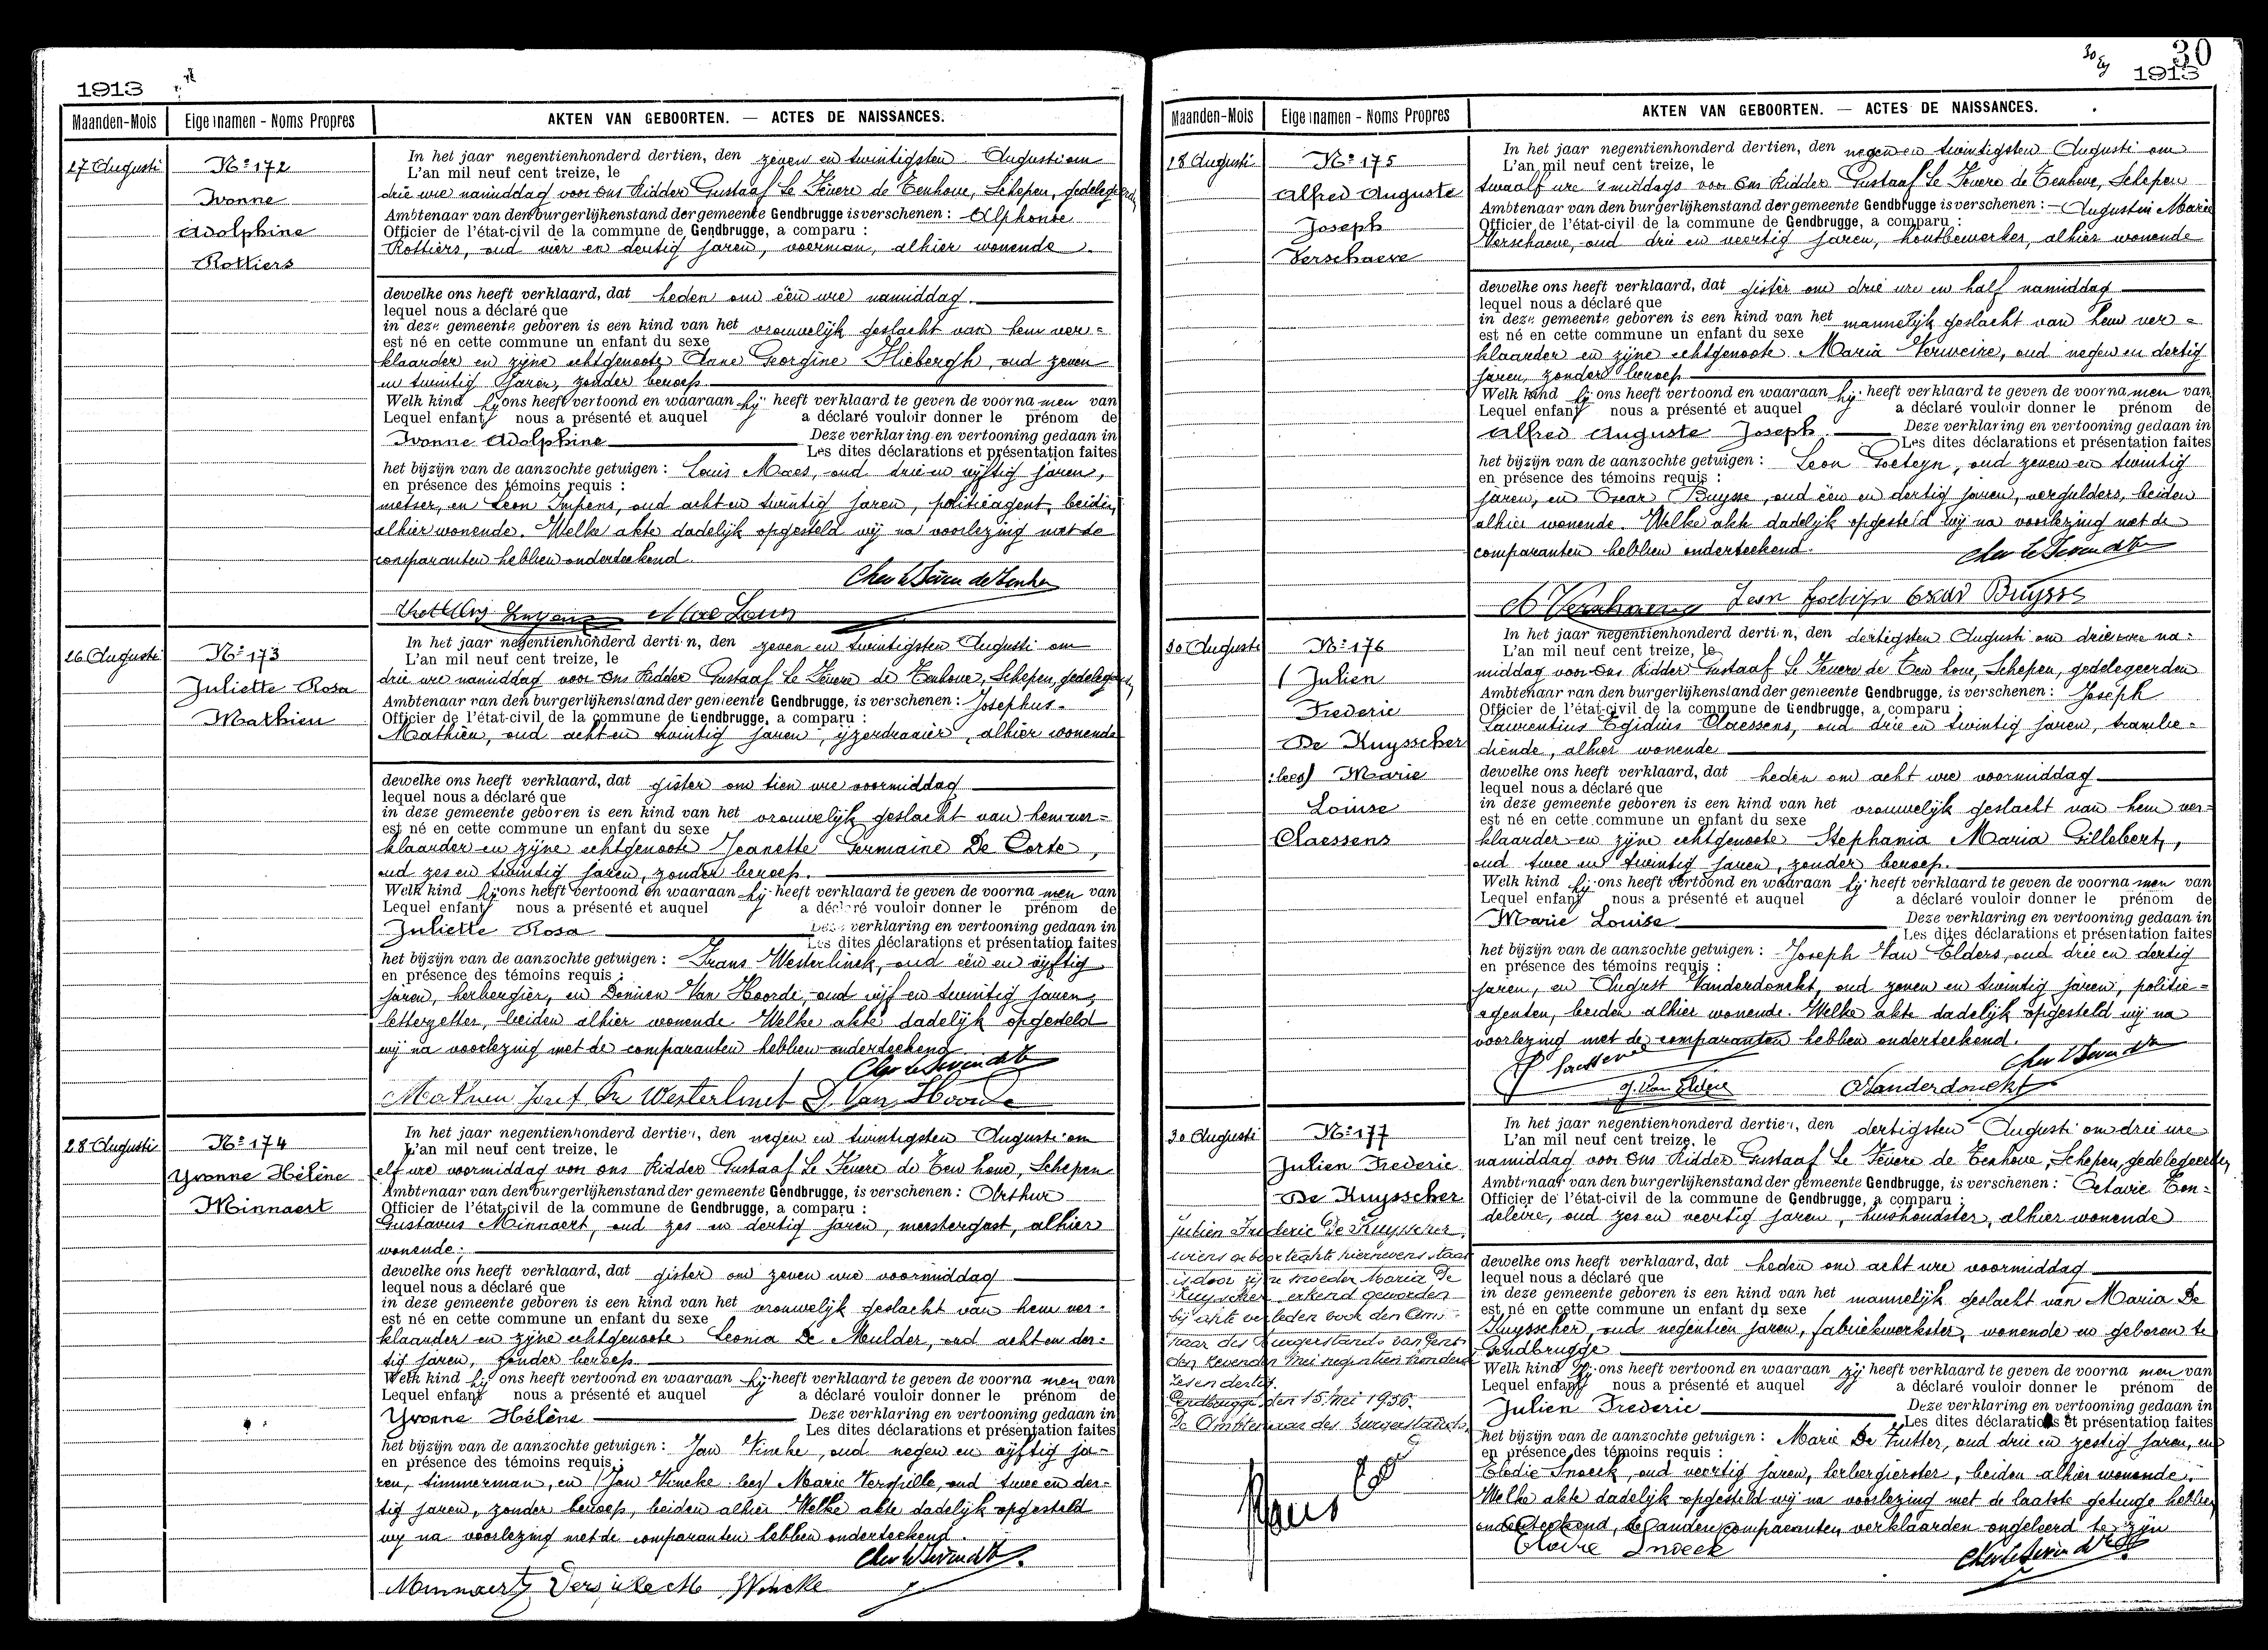 1913
Maanden-Mois Eigennamen - Noms Propres AKTEN VAN GEBOORTEN. — ACTES DE NAISSANCES.
27 Augusti
Nº 172
Ivonne
Adolphine
Rottiers
In het jaar negentienhonderd dertien, den zeven en twintigsten Augusti om
L'an mil neuf cent treize, le
drie ure namiddag voor ons Ridder Gustaaf Le Fevere de Tenhove, Schepen, gedelegeerden
Ambtenaar van den burgerlijkenstand der gemeente Gendbrugge is verschenen : Alphonse
Officier de l'état-civil de la commune de Gendbrugge, a comparu :
Rottiers, oud vier en dertig jaren, voerman, alhier wonende
dewelke ons heeft verklaard, dat heden om één ure namiddag
lequel nous a déclaré que
in deze gemeente geboren is een kind van het vrouwelijk geslacht van hem ver=
est né en cette commune un enfant du sexe
klaarder en zijne echtgenoote Anne Georgine Hiebergh, oud zeven
en twintig jaren, zonder beroep
Welk kind hij ons heeft vertoond en waaraan hij heeft verklaard te geven de voornamen van
Lequel enfant nous a présenté et auquel a déclaré vouloir donner le prénom de
Ivonne Adolphine Deze verklaring en vertooning gedaan in
Les dites déclarations et présentation faites
het bijzijn van de aanzochte getuigen : Louis Maes, oud drie en vijftig jaren,
en présence des témoins requis :
metser, en Leon Impens, oud acht en twintig jaren, politieagent, beiden
alhier wonende. Welke akte dadelijk opgesteld wij na voorlezing met de
comparanten hebben onderteekend.
26 Augusti
Nº 173
Juliette Rosa
Mathieu
In het jaar negentienhonderd dertien, den zeven en twintigsten Augusti om
L'an mil neuf cent treize, le
drie ure namiddag voor ons Ridder Gustaaf Le Fevere de Tenhove, Schepen, gedelegeerden
Ambtenaar van den burgerlijkenstand der gemeente Gendbrugge, is verschenen : Josephus
Officier de l'état-civil de la commune de Gendbrugge, a comparu :
Mathieu, oud acht en twintig jaren, ijzerdraaier, alhier wonende
dewelke ons heeft verklaard, dat gister om tien ure voormiddag
lequel nous a déclaré que
in deze gemeente geboren is een kind van het vrouwelijk geslacht van hem ver=
est né en cette commune un enfant du sexe
klaarder en zijne echtgenoote Jeanette Germaine De Corte,
oud zes en twintig jaren, zonder beroep.
Welk kind hij ons heeft vertoond en waaraan hij heeft verklaard te geven de voornamen van
Lequel enfant nous a présenté et auquel a déclaré vouloir donner le prénom de
Juliette Rosa Deze verklaring en vertooning gedaan in
Les dites déclarations et présentation faites
het bijzijn van de aanzochte getuigen : Frans Westerlinck, oud een en vijftig
en présence des témoins requis :
jaren, herbergier, en Donien Van Hoorde, oud vijf en twintig jaren,
letterzetter, beiden alhier wonende. Welke akte dadelijk opgesteld
wij na voorlezing met de comparanten hebben onderteekend
Mathieu Josef Fr Westerlinck D. Van Hoorde
28 Augusti
Nº 174
Yvonne Hélène
Minnaert
In het jaar negentienhonderd dertien, den negen en twintigsten Augusti om
L'an mil neuf cent treize, le
elf ure voormiddag voor ons Ridder Gustaaf Le Fevere de Ten hove, Schepen
Ambtenaar van den burgerlijkenstand der gemeente Gendbrugge, is verschenen : Arthur
Officier de l'état-civil de la commune de Gendbrugge, a comparu :
Gustavus Minnaert, oud zes en dertig jaren, meestergast, alhier
wonende;
dewelke ons heeft verklaard, dat gister om zeven ure voormiddag
lequel nous a déclaré que
in deze gemeente geboren is een kind van het vrouwelijk geslacht van hem ver=
est né en cette commune un enfant du sexe
klaarder en zijne echtgenoote Leonia De Mulder, oud acht en der=
tig jaren, zonder beroep
Welk kind hij ons heeft vertoond en waaraan hij heeft verklaard te geven de voornamen van
Lequel enfant nous a présenté et auquel a déclaré vouloir donner le prénom de
Yvonne Hélène Deze verklaring en vertooning gedaan in
Les dites déclarations et présentation faites
het bijzijn van de aanzochte getuigen : Jan Vincke, oud negen en vijftig ja=
en présence des témoins requis :
ren, timmerman, en (Jan Vincke lees) Marie Verspille, oud twee en der=
tig jaren, zonder beroep, beiden alhier Welke akte dadelijk opgesteld
wij na voorlezing met de comparanten hebben onderteekend.
Minnaert
30
1913
Maanden-Mois Eigennamen - Noms Propres AKTEN VAN GEBOORTEN. — ACTES DE NAISSANCES.
28 Augusti
Nº 175
Alfred Auguste
Joseph
Verschaeve
In het jaar negentienhonderd dertien, den negen en twintigsten Augusti om
L'an mil neuf cent treize, le
twaalf ure 's middags voor ons Ridder Gustaaf Le Fevere de Tenhove, Schepen
Ambtenaar van den burgerlijkenstand der gemeente Gendbrugge is verschenen : Augustin Marie
Officier de l'état-civil de la commune de Gendbrugge, a comparu :
Verschaeve, oud drie en veertig jaren, houtbewerker, alhier wonende
dewelke ons heeft verklaard, dat gister om drie ure en half namiddag
lequel nous a déclaré que
in deze gemeente geboren is een kind van het mannelijk geslacht van hem ver=
est né en cette commune un enfant du sexe
klaarder en zijne echtgenoote Maria Verweire, oud negen en dertig
jaren, zonder beroep
Welk kind hij ons heeft vertoond en waaraan hij heeft verklaard te geven de voornamen van
Lequel enfant nous a présenté et auquel a déclaré vouloir donner le prénom de
Alfred Auguste Joseph Deze verklaring en vertooning gedaan in
Les dites déclarations et présentation faites
het bijzijn van de aanzochte getuigen : Leon Goeteyn, oud zeven en twintig
en présence des témoins requis :
jaren, en Oscar Buysse, oud één en dertig jaren, vergulders, beiden
alhier wonende. Welke akte dadelijk opgesteld wij na voorlezing met de
comparanten hebben onderteekend.
Oscar Buysse
30 Augusti
Nº 176
( Julien
Frederic
De Kuysscher
:lees) Marie
Louise
Claessens
In het jaar negentienhonderd dertien, den dertigsten Augusti om drie ure na=
L'an mil neuf cent treize, le
middag voor ons Ridder Gustaaf Le Fevere de Ten hove, Schepen, gedelegeerden
Ambtenaar van den burgerlijkenstand der gemeente Gendbrugge, is verschenen : Joseph
Officier de l'état-civil de la commune de Gendbrugge, a comparu :
Laurentius Egidius Claessens, oud drie en twintig jaren, trambe=
diende, alhier wonende
dewelke ons heeft verklaard, dat heden om acht ure voormiddag
lequel nous a déclaré que
in deze gemeente geboren is een kind van het vrouwelijk geslacht van hem ver=
est né en cette commune un enfant du sexe
klaarder en zijne echtgenoote Stephania Maria Gillebert,
oud twee en twintig jaren, zonder beroep.
Welk kind hij ons heeft vertoond en waaraan hij heeft verklaard te geven de voornamen van
Lequel enfant nous a présenté et auquel a déclaré vouloir donner le prénom de
Marie Louise Deze verklaring en vertooning gedaan in
Les dites déclarations et présentation faites
het bijzijn van de aanzochte getuigen : Joseph Van Elders, oud drie en dertig
en présence des témoins requis :
jaren, en August Vanderdonckt, oud zeven en twintig jaren, politie=
agenten, beiden alhier wonende. Welke akte dadelijk opgesteld wij na
voorlezing met de comparanten hebben onderteekend.
Vanderdonckt
30 Augusti
Nº 177
Julien Frederic
De Kuysscher
Julien Frederic De Kuysscher,
wiens geboorteakte hiernevens staat
is door zijne moeder Maria De
Kuysscher erkend geworden
bij akte verleden voor den Amb=
naar des Burgerstands van Gent
den zevenden Mei negentien honderd
zes en dertig.
Gendbrugge, den 15 Mei 1936.
De Ambtenaar des Burgerstands,
In het jaar negentienhonderd dertien, den dertigsten Augusti om drie ure
L'an mil neuf cent treize, le
namiddag voor ons Ridder Gustaaf Le Fevere de Tenhove, Schepen, gedelegeerden
Ambtenaar van den burgerlijkenstand der gemeente Gendbrugge, is verschenen : Octavie Ton=
Officier de l'état-civil de la commune de Gendbrugge, a comparu :
deleire, oud zes en veertig jaren, huishoudster, alhier wonende
dewelke ons heeft verklaard, dat heden om acht ure voormiddag
lequel nous a déclaré que
in deze gemeente geboren is een kind van het mannelijk geslacht van Maria De
est né en cette commune un enfant du sexe
Kuysscher, oud negentien jaren, fabriekwerkster, wonende en geboren te
Gendbrugge
Welk kind zij ons heeft vertoond en waaraan zij heeft verklaard te geven de voornamen van
Lequel enfant nous a présenté et auquel a déclaré vouloir donner le prénom de
Julien Frederic Deze verklaring en vertooning gedaan in
Les dites déclarations et présentation faites
het bijzijn van de aanzochte getuigen : Marie De Futter, oud drie en zestig jaren, en
en présence des témoins requis :
Elodie Snoeck, oud veertig jaren, herbergierster, beiden alhier wonende.
Welke akte dadelijk opgesteld wij na voorlezing met de laatste getuige hebben
onderteekend, de anden comparanten verklaarden ongeleerd te zijn
Snoeck